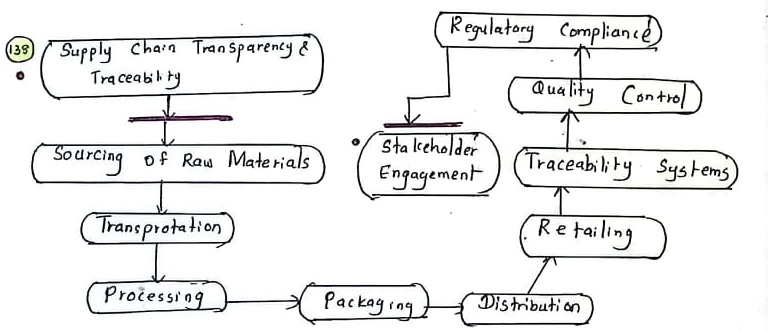 138
Supply Chain Transparency &
Traceability
Sourcing Of Raw Materials
Transprotation
Processing
Packaging
Distribution
Retailing
Traceability Systems
Quality Control
Regulatory Compliance
Stakeholder
Engagement